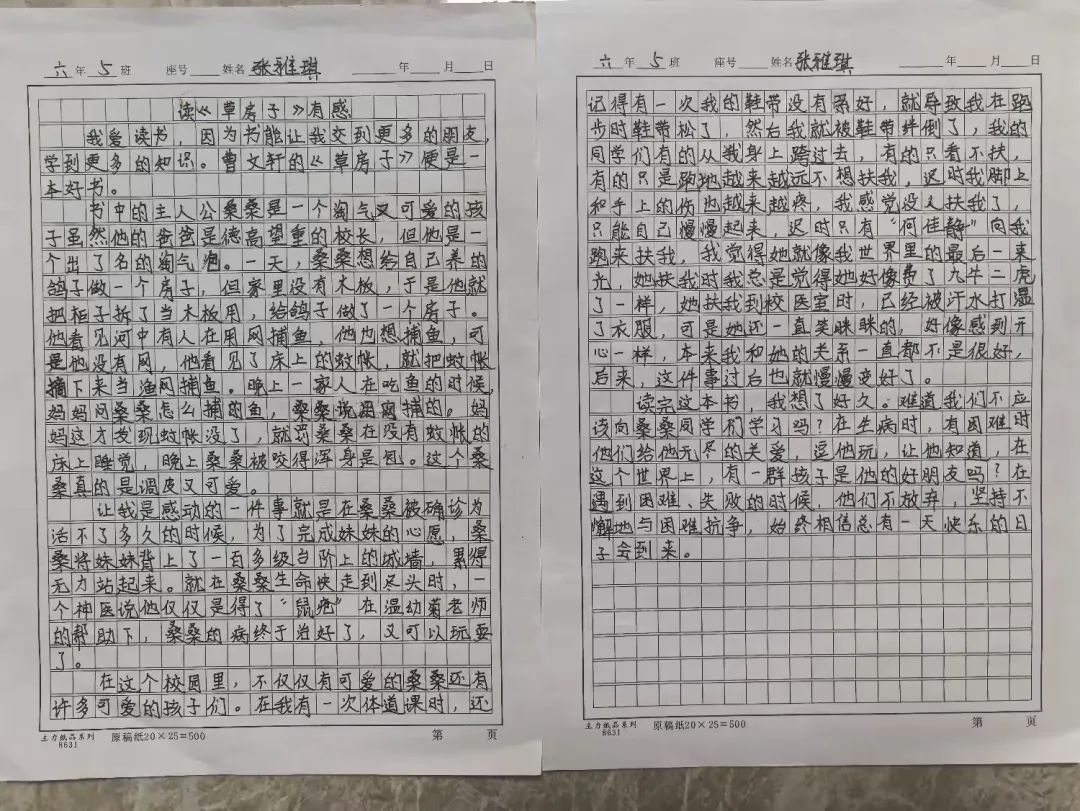 六年5班 座号 姓名张雅琪 年 月 日
读《草房子》有感
我爱读书，因为书能让我交到更多的朋友，
学到更多的知识。曹文轩的《草房子》便是一
本好书。
书中的主人公桑桑是一个淘气又可爱的孩
子虽然他的爸爸是德高望重的校长，但他是一
个出了名的淘气泡。一天，桑桑想给自己养的
鸽子做一个房子，但家里没有木板，于是他就
把柜子拆了当木板用，给鸽子做了一个房子。
他看见河中有人在用网捕鱼，他也想捕鱼，可
是他没有网，他看见了床上的蚊帐，就把蚊帐
摘下来当渔网捕鱼。晚上一家人在吃鱼的时候，
妈妈问桑桑怎么捕的鱼，桑桑说用网捕的。妈
妈这才发现蚊帐没了，就罚桑桑在没有蚊帐的
床上睡觉，晚上桑桑被咬得浑身是包。这个桑
桑真的是调皮又可爱。
让我是感动的一件事就是在桑桑被确诊为
活不了多久的时候，为了完成妹妹的心愿，桑
桑将妹妹背上了一百多级台阶上的城墙，累得
无力站起来。就在桑桑生命快走到尽头时，一
个神医说他仅仅是得了“鼠疮”在温幼菊老师
的帮助下，桑桑的病终于治好了，又可以玩耍
了。
在这个校园里，不仅仅有可爱的桑桑还有
许多可爱的孩子们。在我有一次体道课时，还
主力纸品系列 8631 原稿纸20×25=500 第 页
六年5班 座号 姓名张雅琪 年 月 日
记得有一次我的鞋带没有系好，就导致我在跑
步时鞋带松了，然后我就被鞋带绊倒了，我的
同学们有的从我身上跨过去，有的只看不扶，
有的只是跑地越来越远不想扶我，迟时我脚上
和手上的伤也越来越疼，我感觉没人扶我了，
只能自己慢慢起来，迟时只有“何佳静”向我
跑来扶我，我觉得她就像我世界里的最后一束
光，她扶我时我总是觉得她好像费了九牛二虎
了一样，她扶我到校医室时，已经被汗水打湿
了衣服，可是她还一直笑眯眯的，好像感到开
心一样，本来我和她的关系一直都不是很好，
后来，这件事过后也就慢慢变好了。
读完这本书，我想了好久。难道我们不应
该向桑桑同学们学习吗？在生病时，有困难时
他们给他无尽的关爱，逗他玩，让他知道，在
这个世界上，有一群孩子是他的好朋友吗？在
遇到困难、失败的时候，他们不放弃，坚持不
懈地与困难抗争，始终相信总有一天快乐的日
子会到来。
主力纸品系列 8631 原稿纸20×25=500 第 页